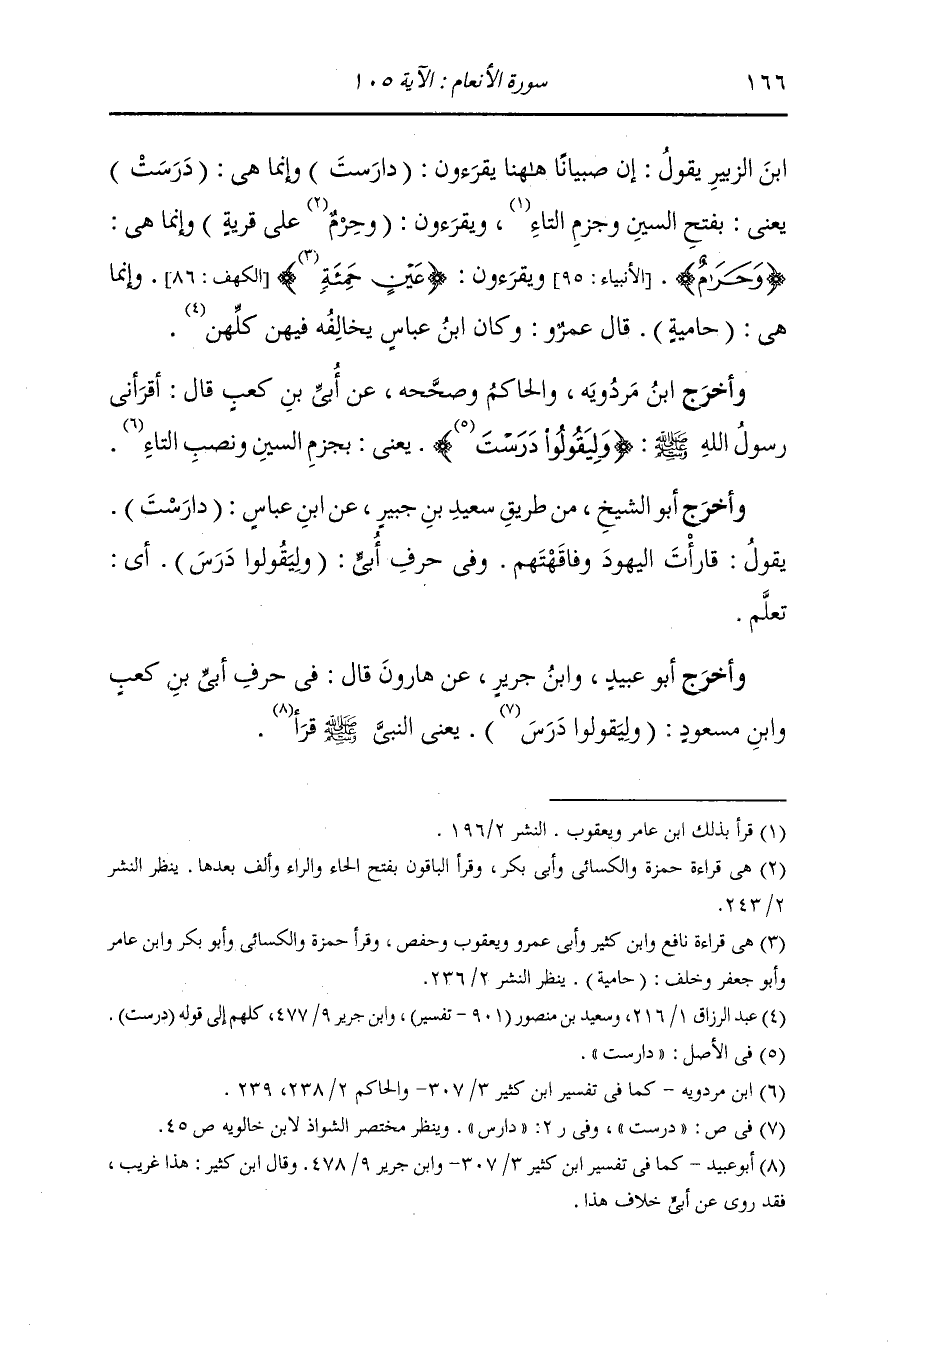 ١٦٦ سورة الأنعام : الآية ١٠٥
ابنَ الزبيرِ يقولُ : إن صبيانًا هٰهنا يقرَءون : ( دارَستَ ) وإنما هى : ( دَرَسَتْ )
يعنى : بفتحِ السينِ وجزمِ التاءِ(١) ، ويقرَءون : ( وحِرْمٌ(٢) على قريةٍ ) وإنما هى :
﴿وَحَكَرَٰمٌ﴾ . [الأنبياء : ٩٥] ويقرَءون : ﴿عَيْنٍ حَمِئَةٍ(٣)﴾ [الكهف : ٨٦] . وإنما
هى : ( حاميةٍ ) . قال عمرٌو : وكان ابنُ عباسٍ يخالِفُه فيهن كلِّهن(٤) .
وأخرَج ابنُ مَردُويَه ، والحاكمُ وصحَّحه ، عن أُبىِّ بنِ كعبٍ قال : أقرَأنى
رسولُ اللهِ ﷺ : ﴿وَلِيَقُولُواْ دَرَسْتَ(٥)﴾ . يعنى : بجزمِ السينِ ونصبِ التاءِ(٦) .
وأخرَج أبو الشيخِ ، من طريقِ سعيدِ بنِ جبيرٍ ، عن ابنِ عباسٍ : ( دارَسْتَ ) .
يقولُ : قارأْتَ اليهودَ وفاقَهْتَهم . وفى حرفِ أُبىٍّ : ( ولِيَقُولوا دَرَسَ ) . أى :
تعلَّم .
وأخرَج أبو عبيدٍ ، وابنُ جريرٍ ، عن هارونَ قال : فى حرفِ أبىِّ بنِ كعبٍ
وابنِ مسعودٍ : ( ولِيَقولوا دَرَسَ(٧) ) . يعنى النبىَّ ﷺ قرَأ(٨) .
(١) قرأ بذلك ابن عامر ويعقوب . النشر ١٩٦/٢ .
(٢) هى قراءة حمزة والكسائى وأبى بكر ، وقرأ الباقون بفتح الحاء والراء وألف بعدها . ينظر النشر
٢٤٣/٢.
(٣) هى قراءة نافع وابن كثير وأبى عمرو ويعقوب وحفص ، وقرأ حمزة والكسائى وأبو بكر وابن عامر
وأبو جعفر وخلف : ( حامية ) . ينظر النشر ٢/ ٢٣٦.
(٤) عبد الرزاق ١/ ٢١٦، وسعيد بن منصور (٩٠١ - تفسير) ، وابن جرير ٩/ ٤٧٧، كلهم إلى قوله (درست) .
(٥) فى الأصل : « دارست » .
(٦) ابن مردويه - كما فى تفسير ابن كثير ٣/ ٣٠٧- والحاكم ٢/ ٢٣٨، ٢٣٩ .
(٧) فى ص : « درست » ، وفى ر ٢: « دارس » . وينظر مختصر الشواذ لابن خالويه ص ٤٥.
(٨) أبوعبيد - كما فى تفسير ابن كثير ٣/ ٣٠٧- وابن جرير ٩/ ٤٧٨. وقال ابن كثير : هذا غريب ،
فقد روى عن أبىٍّ خلاف هذا .